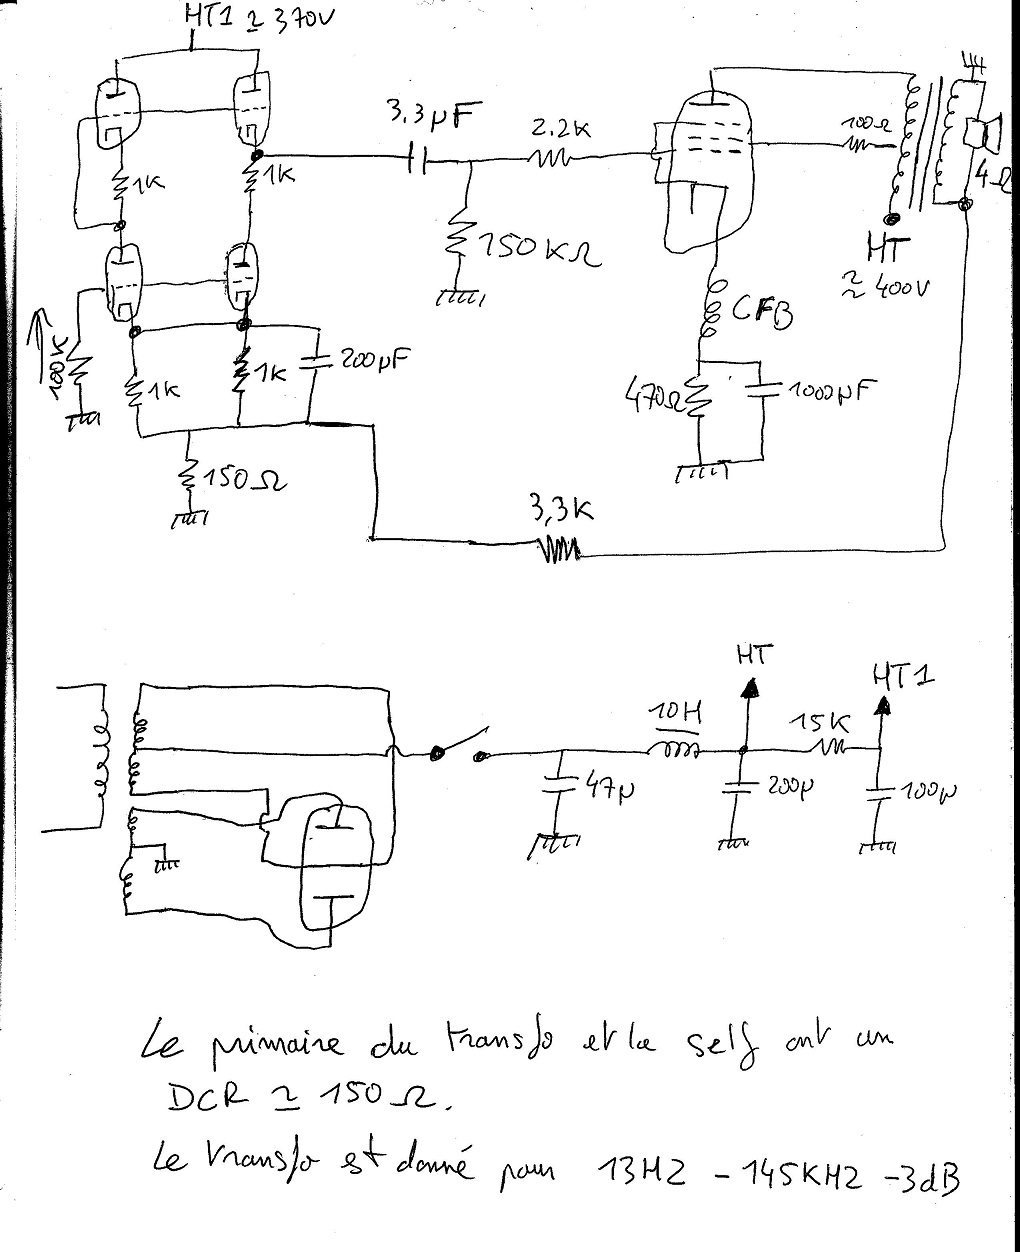 HT1 ≃ 370V
3.3µF
2.2K
100Ω
1K
1K
4Ω
150KΩ
HT
≃ 400V
CFB
100K
1K
1K
200µF
470Ω
1000µF
150Ω
3,3K
HT
HT1
10H
15K
47µ
200µ
100µ
Le primaire du transfo et la self ont un
DCR ≃ 150Ω.
Le transfo est donné pour 13HZ - 145KHZ -3dB